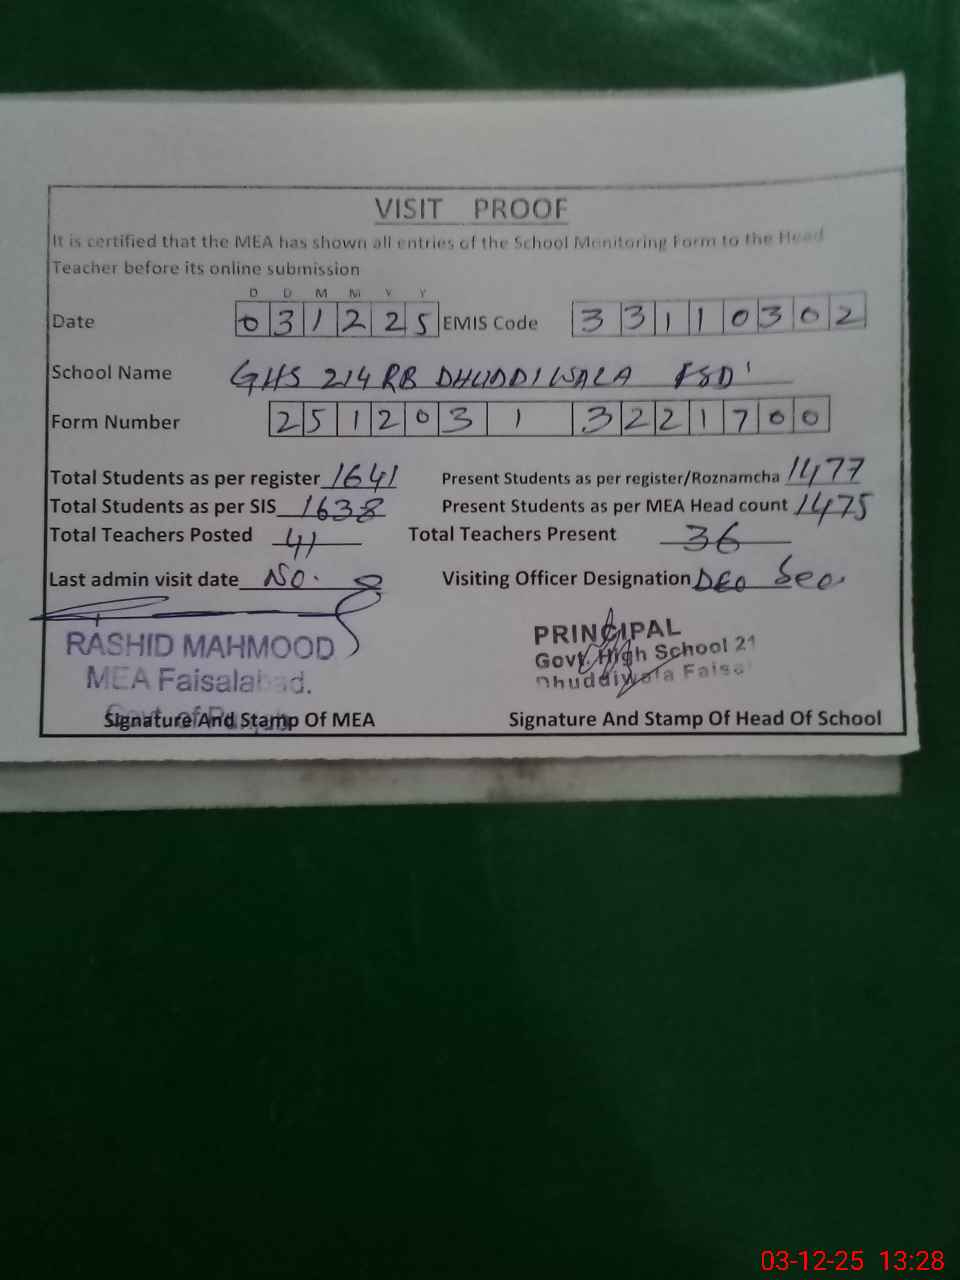 VISIT PROOF
It is certified that the MEA has shown all entries of the School Monitoring Form to the Head
Teacher before its online submission
D D M M Y Y
Date 0 3 1 2 2 5 EMIS Code 3 3 1 1 0 3 0 2
School Name GHS 214 RB DHUDDIWALA FSD
Form Number 2 5 1 2 0 3 1 3 2 2 1 7 0 0
Total Students as per register 1641 Present Students as per register/Roznamcha 1477
Total Students as per SIS 1638 Present Students as per MEA Head count 1475
Total Teachers Posted 41 Total Teachers Present 36
Last admin visit date NO. Visiting Officer Designation DEO Seo
RASHID MAHMOOD
MEA Faisalabad.
Govt. of Punjab
Signature And Stamp Of MEA
PRINCIPAL
Govt. High School 21
Dhuddiwala Faisa
Signature And Stamp Of Head Of School
03-12-25 13:28